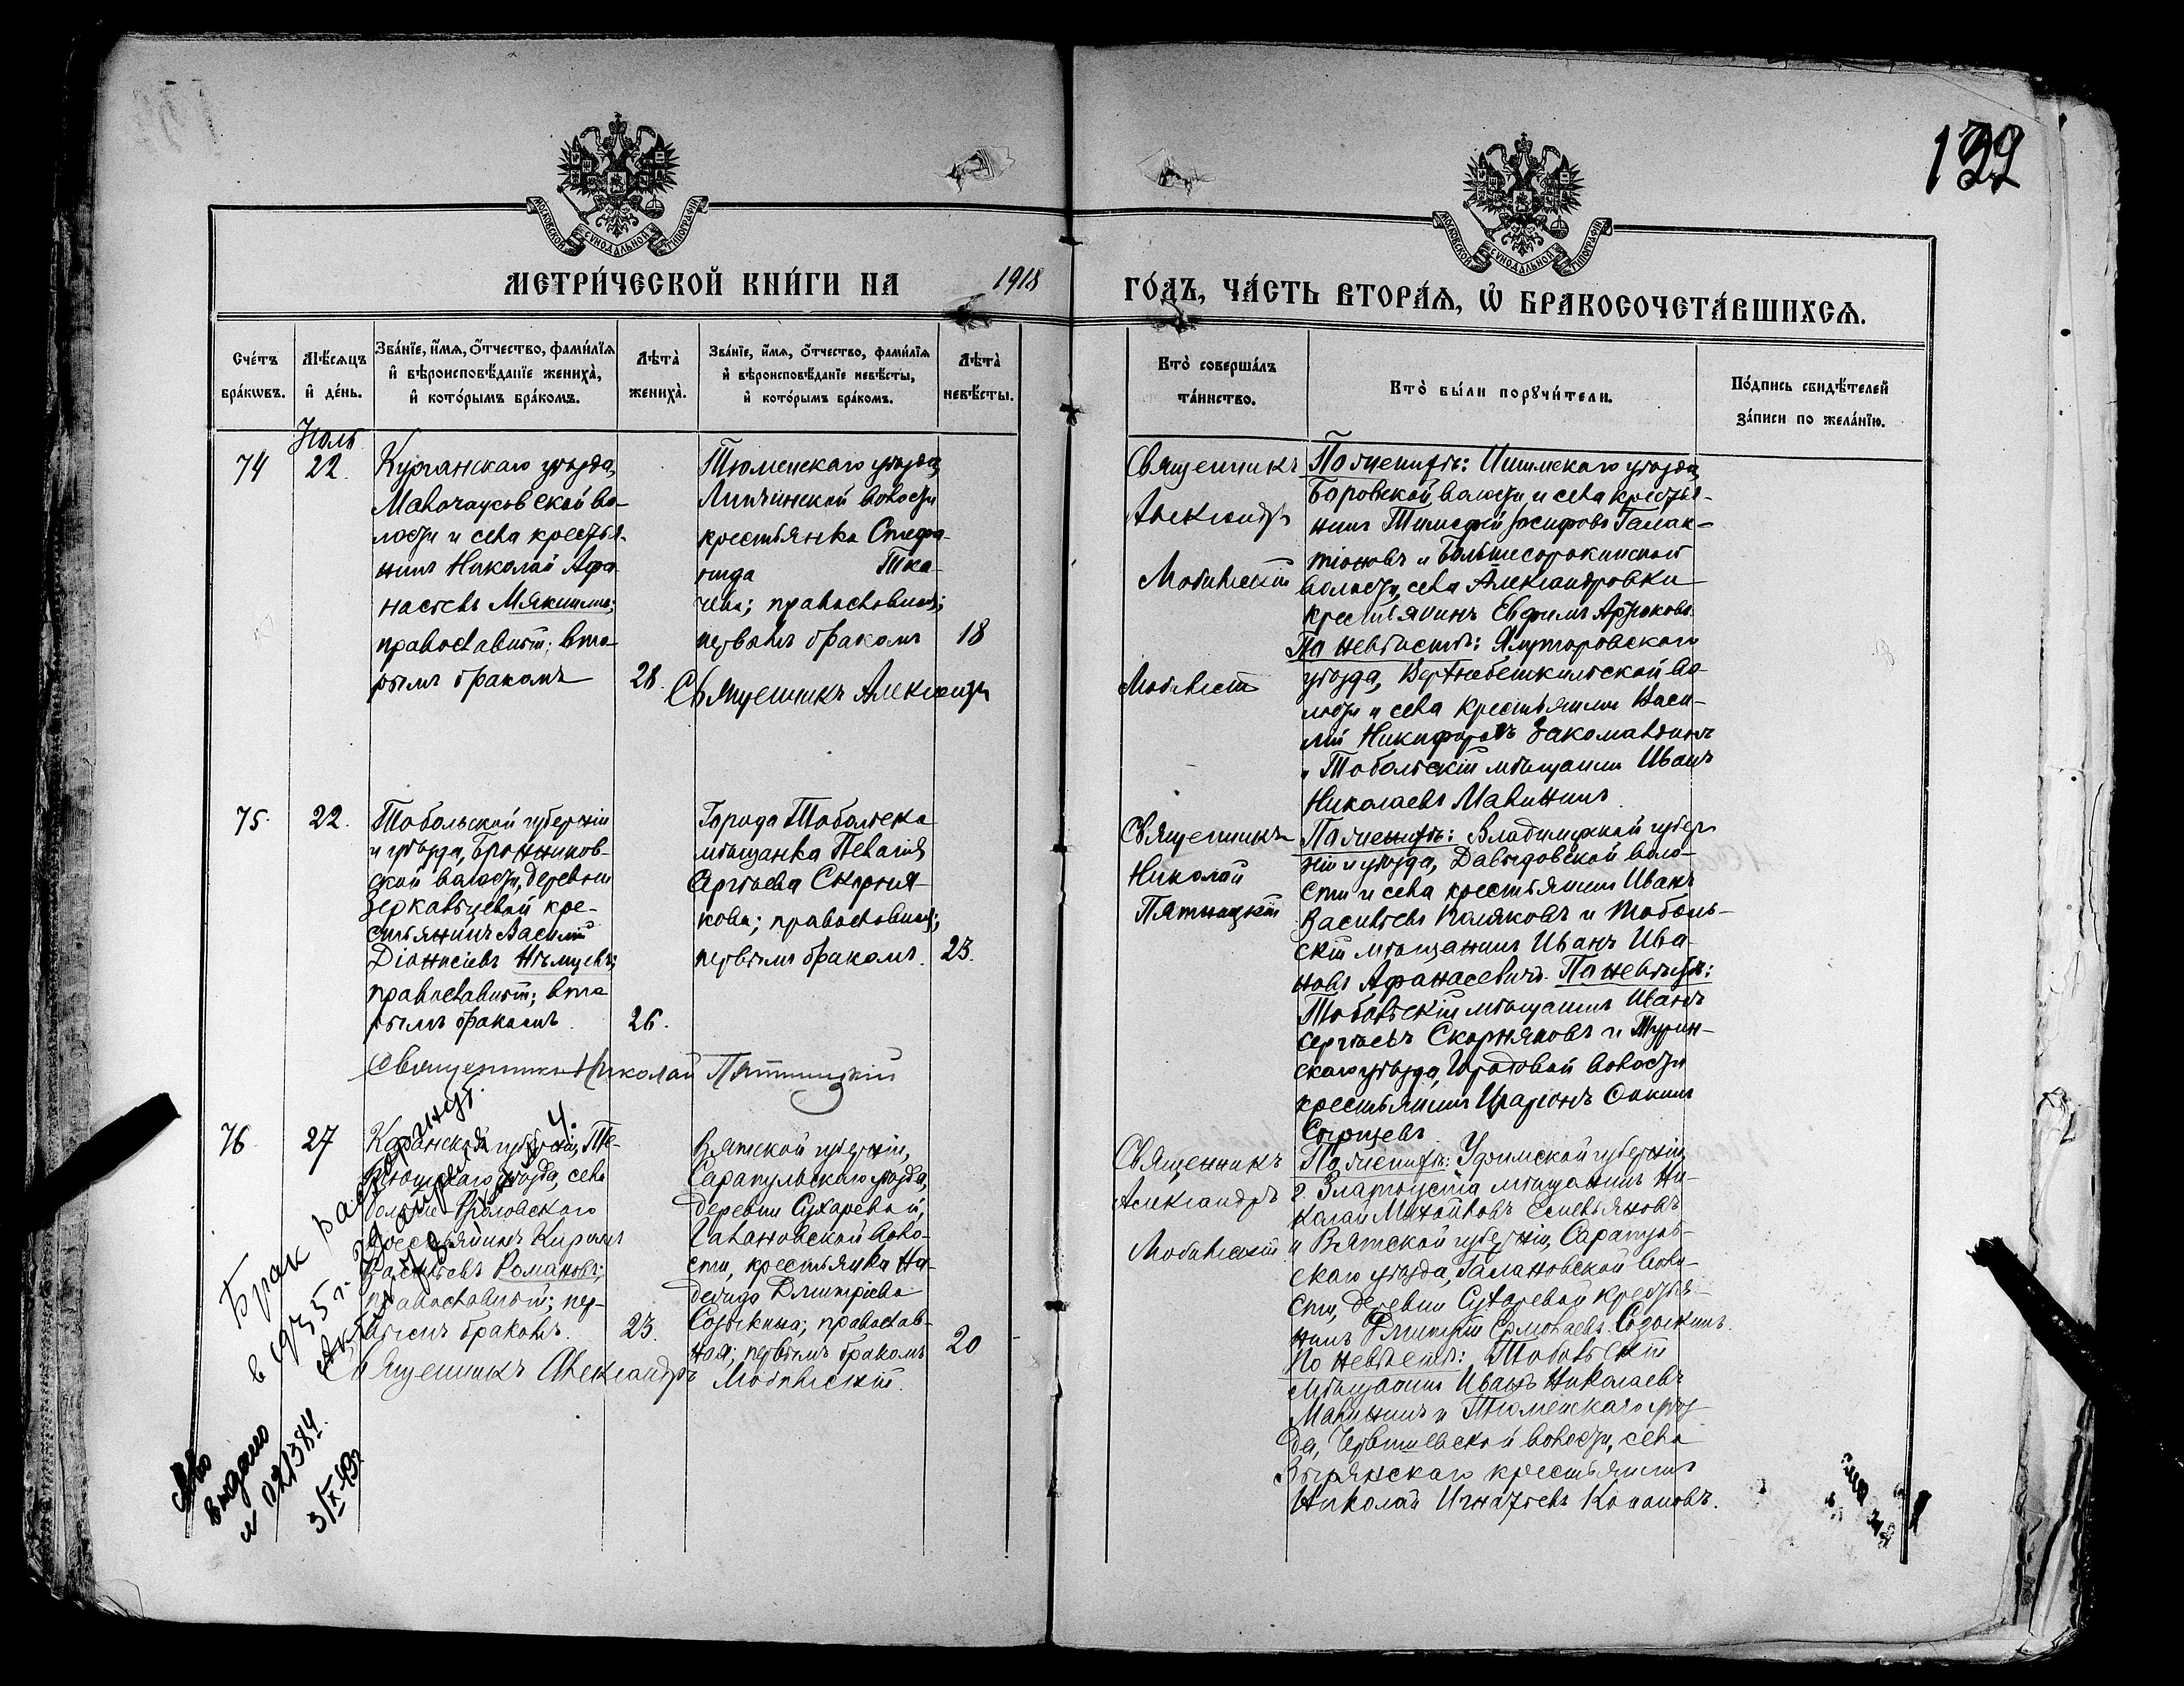 199
МОСКОВСКОЙ СѴНОДАЛЬНОЙ ТИПОГРАФІИ
МОСКОВСКОЙ СѴНОДАЛЬНОЙ ТИПОГРАФІИ
МЕТРИ́ЧЕСКОЙ КНИ́ГИ НА 1918 ГО́ДЪ, ЧА́СТЬ ВТОРА́Ѧ, Ѽ БРАКОСОЧЕТА́ВШИХСѦ.
Сче́тъ
бра́кѡвъ.
Мѣ́сѧцъ
и҆ де́нь.
Зва́нїе, и҆́мѧ, ѻ҆́тчество, фами́лїѧ
и҆ вѣроисповѣ́данїе жениха̀,
и҆ кото́рымъ бра́комъ.
Лѣта̀
жениха̀.
Зва́нїе, и҆́мѧ, ѻ҆́тчество, фами́лїѧ
и҆ вѣроисповѣ́данїе невѣ́сты,
и҆ кото́рымъ бра́комъ.
Лѣта̀
невѣ́сты.
Кто̀ соверша́лъ
та́инство.
Кто̀ бы́ли порꙋчи́тели.
По́дпись свидѣ́телей
за́писи по жела́нїю.
Іюль
74
22.
Курганскаго уѣзда,
Малочаусовской во-
лости и села крестья-
нинъ Николай Афа
насьевъ Мякишевъ;
православный; вто
рымъ бракомъ
28.
Тюменскаго уѣзда,
Липчинской волости
крестьянка Стефа-
нида Тка-
чева; православная;
первымъ бракомъ
18
Священникъ Александръ
Священникъ
Александръ
По женихѣ: Ишимскаго уѣзда,
Боровской волости и села крестья-
нинъ Тимофей Іосифовъ Галак-
тіоновъ и Большесорокинской
волости, села Александровки
крестьянинъ Евфимъ
По невѣстѣ: Ялуторовскаго
уѣзда, Верхнебешкильской во-
лости и села крестьянинъ Васи-
лій Никифоровъ Закомалдинъ
и Тобольскій мѣщанинъ Иванъ
Николаевъ Малининъ.
75.
22.
Тобольской губерніи
и уѣзда, Бронников-
ской волости, деревни
Зеркальцевой кре-
стьянинъ Василій
Діонисіевъ Нѣмцевъ;
православный; вто
рымъ бракомъ.
26.
Города Тобольска
мѣщанка Пелагія
Сергѣева Скорня-
кова; православная;
первымъ бракомъ.
23.
Священникъ Николай Пятницкій
Священникъ
Николай
Пятницкій
По женихѣ: Владимірской губер
ніи и уѣзда, Давыдовской воло-
сти и села крестьянинъ Иванъ
Васильевъ Поляковъ и Тоболь-
скій мѣщанинъ Иванъ Ива-
новъ Афанасевичъ. По невѣстѣ:
Тобольскій мѣщанинъ Иванъ
Сергѣевъ Скорняковъ и Турин-
скаго уѣзда, Городовой волости
крестьянинъ Иларіонъ
76.
27
Казанской губерніи, Те-
тюшскаго уѣзда, села
Фроловскаго
крестьянинъ Кириллъ
Васильевъ Романовъ;
православный; пер-
вымъ бракомъ.
23.
Вятской губерніи,
Сарапульскаго уѣзда,
деревни Сухаревой,
Галановской воло-
сти, крестьянка На-
дежда Димитріева
Созыкина; православ-
ная; первымъ бракомъ
20
Священникъ Александръ
Священникъ
Александръ
По женихѣ: Уфимской губерніи,
г. Златоуста мѣщанинъ Ни-
колай Михайловъ Емельяновъ
и Вятской губерніи, Сарапуль-
скаго уѣзда, Галановской воло-
сти, деревни Сухаревой крестья-
нинъ Димитрій Ермолаевъ Созыкинъ.
По невѣстѣ: Тобольскій
мѣщанинъ Иванъ Николаевъ
Малининъ и Тюменскаго уѣз-
да, Червишевской волости, села
Зырянскаго крестьянинъ
Николай Игнатьевъ Конановъ.
Брак расторгнут
в 1935 г.
выдано
№ 021384
3/IX-43г